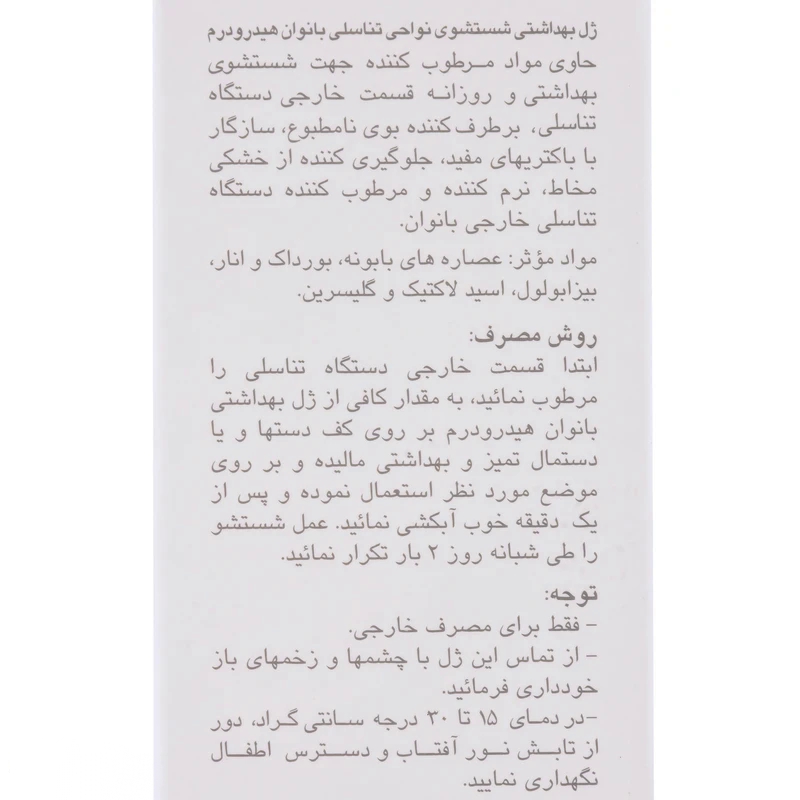 ژل بهداشتی شستشوی نواحی تناسلی بانوان هیدرودرم
حاوی مواد مرطوب کننده جهت شستشوی
بهداشتی و روزانه قسمت خارجی دستگاه
تناسلی، برطرف کننده بوی نامطبوع، سازگار
با باکتریهای مفید، جلوگیری کننده از خشکی
مخاط، نرم کننده و مرطوب کننده دستگاه
تناسلی خارجی بانوان.
مواد مؤثر: عصاره های بابونه، بورداک و انار،
بیزابولول، اسید لاکتیک و گلیسرین.
روش مصرف:
ابتدا قسمت خارجی دستگاه تناسلی را
مرطوب نمائید، به مقدار کافی از ژل بهداشتی
بانوان هیدرودرم بر روی کف دستها و یا
دستمال تمیز و بهداشتی مالیده و بر روی
موضع مورد نظر استعمال نموده و پس از
یک دقیقه خوب آبکشی نمائید. عمل شستشو
را طی شبانه روز ۲ بار تکرار نمائید.
توجه:
- فقط برای مصرف خارجی.
- از تماس این ژل با چشمها و زخمهای باز
خودداری فرمائید.
-در دمای ۱۵ تا ۳۰ درجه سانتی گراد، دور
از تابش نور آفتاب و دسترس اطفال
نگهداری نمایید.